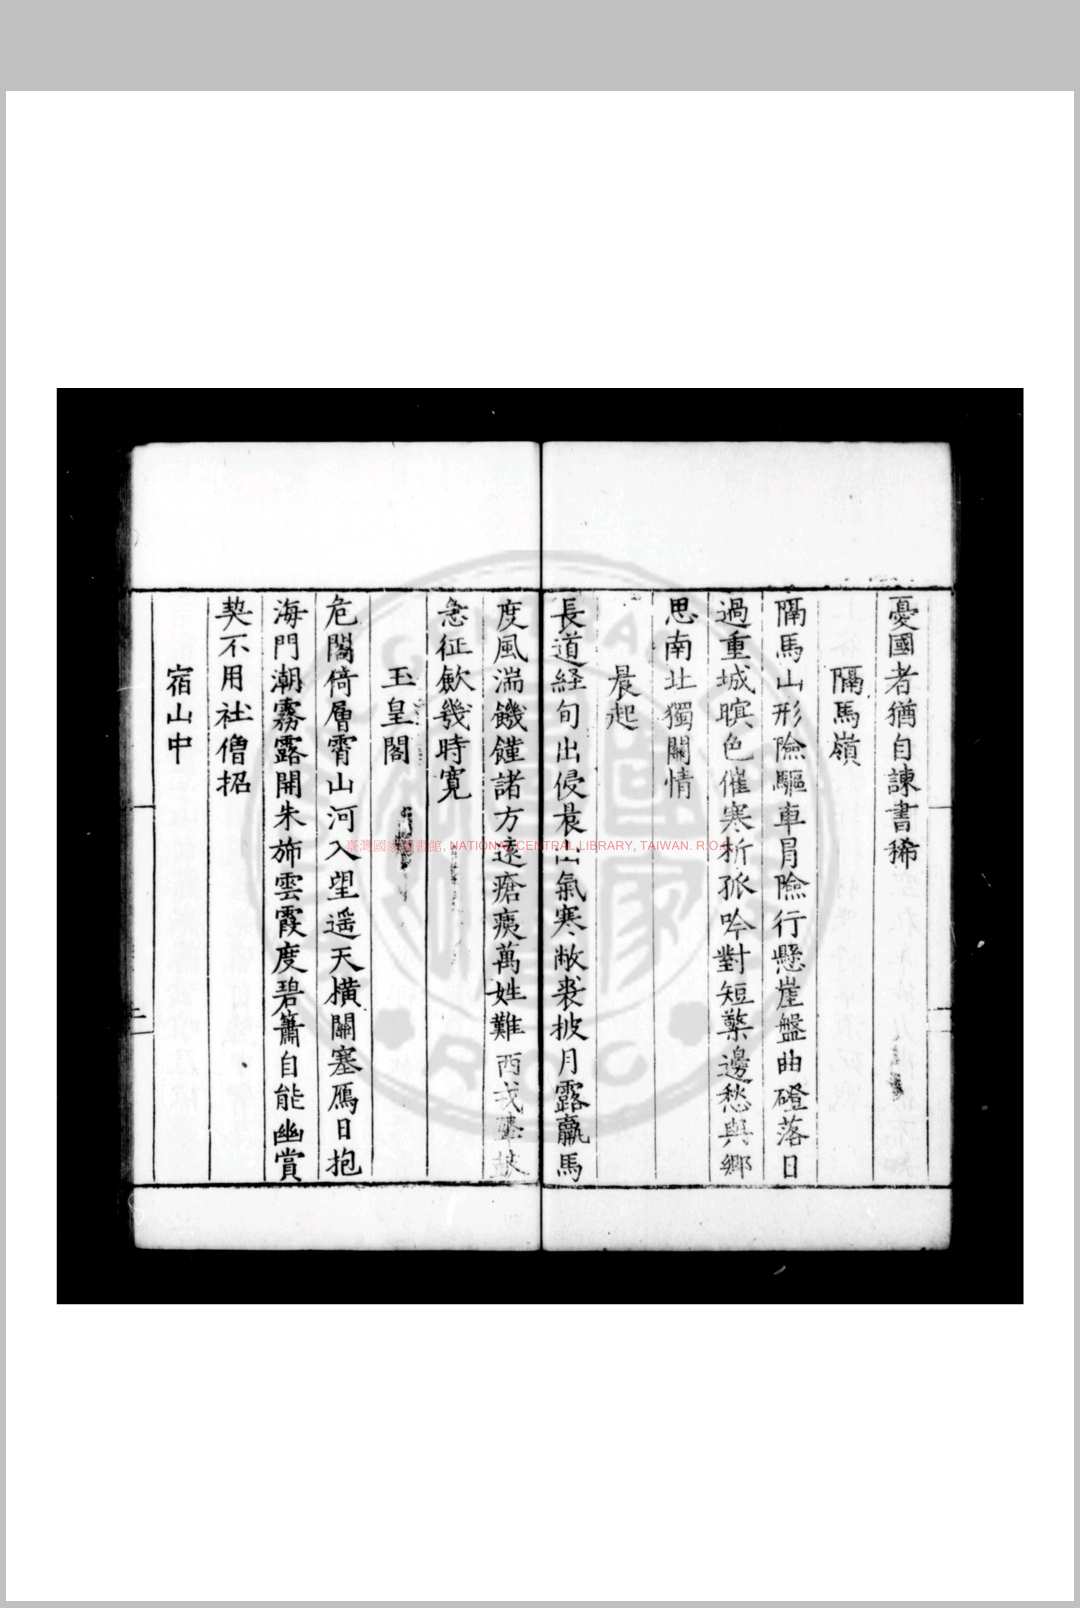 憂國者猶自諫書稀
隔馬嶺
隔馬山形險驅車冐險行懸崖盤曲磴落日
過重城暝色催寒柝孤吟對短檠邊愁與鄉
思南北獨關情
晨起
長道経旬出侵晨山氣寒敝裘披月露羸馬
度風湍饑饉諸方遠瘡痍萬姓難西戎鼙鼓
急征歛幾時寛
玉皇閣
危閣倚層霄山河入望遥天橫關塞鴈日抱
海門潮霧露開朱斾雲霞度碧簫自能幽賞
契不用社僧招
宿山中
臺灣國家圖書館, NATIONAL CENTRAL LIBRARY, TAIWAN. R.O.C